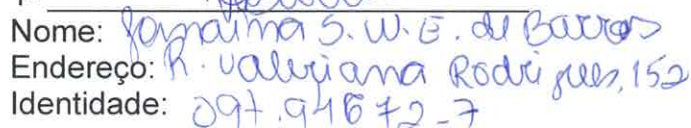 Nome: Janaína S. W. E. de Barros
Endereço: R. Valeriana Rodrigues, 152
Identidade: 097.94672-7